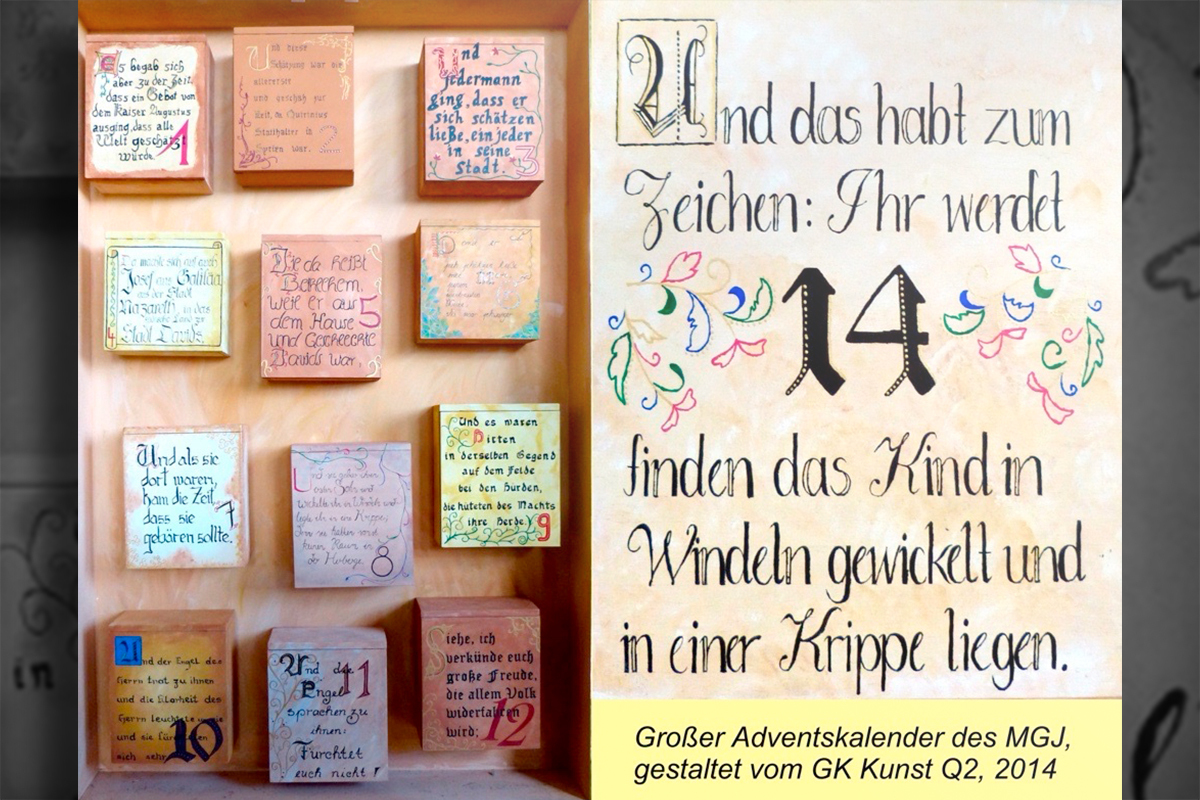 Es begab sich
aber zu der Zeit,
dass ein Gebot von
dem Kaiser Augustus
ausging, dass alle
Welt geschätzt
würde. 1
Und diese
Schätzung war die
allererste
und geschah zur
Zeit, da Quirinius
Statthalter in
Syrien war. 2
Und
jedermann
ging, dass er
sich schätzen
ließe, ein jeder
in seine
Stadt. 3
Da machte sich auf auch
Josef aus Galiläa,
aus der Stadt
Nazareth, in das
Land zu
4 Stadt Davids,
Die da heißt
Betlehem,
weil er aus
dem Hause 5
und Geschlechte
Davids war,
Und als sie
dort waren,
kam die Zeit,
dass sie 7
gebären sollte.
Und sie gebar ihren
ersten Sohn und
wickelte ihn in Windeln und
legte ihn in eine Krippe;
denn sie hatten sonst
keinen Raum in
der Herberge. 8
Und es waren
Hirten
in derselben Gegend
auf dem Felde
bei den Hürden,
die hüteten des Nachts
ihre Herde. 9
Und der Engel des
Herrn trat zu ihnen
und die Klarheit des
Herrn leuchtete um sie
und sie fürchteten
sich sehr. 10
Und der 11
Engel
sprachen zu
ihnen:
Fürchtet
euch nicht!
Siehe, ich
verkünde euch
große Freude,
die allem Volk
widerfahren
wird; 12
Und das habt zum
Zeichen: Ihr werdet
14
finden das Kind in
Windeln gewickelt und
in einer Krippe liegen.
Großer Adventskalender des MGJ,
gestaltet vom GK Kunst Q2, 2014
in